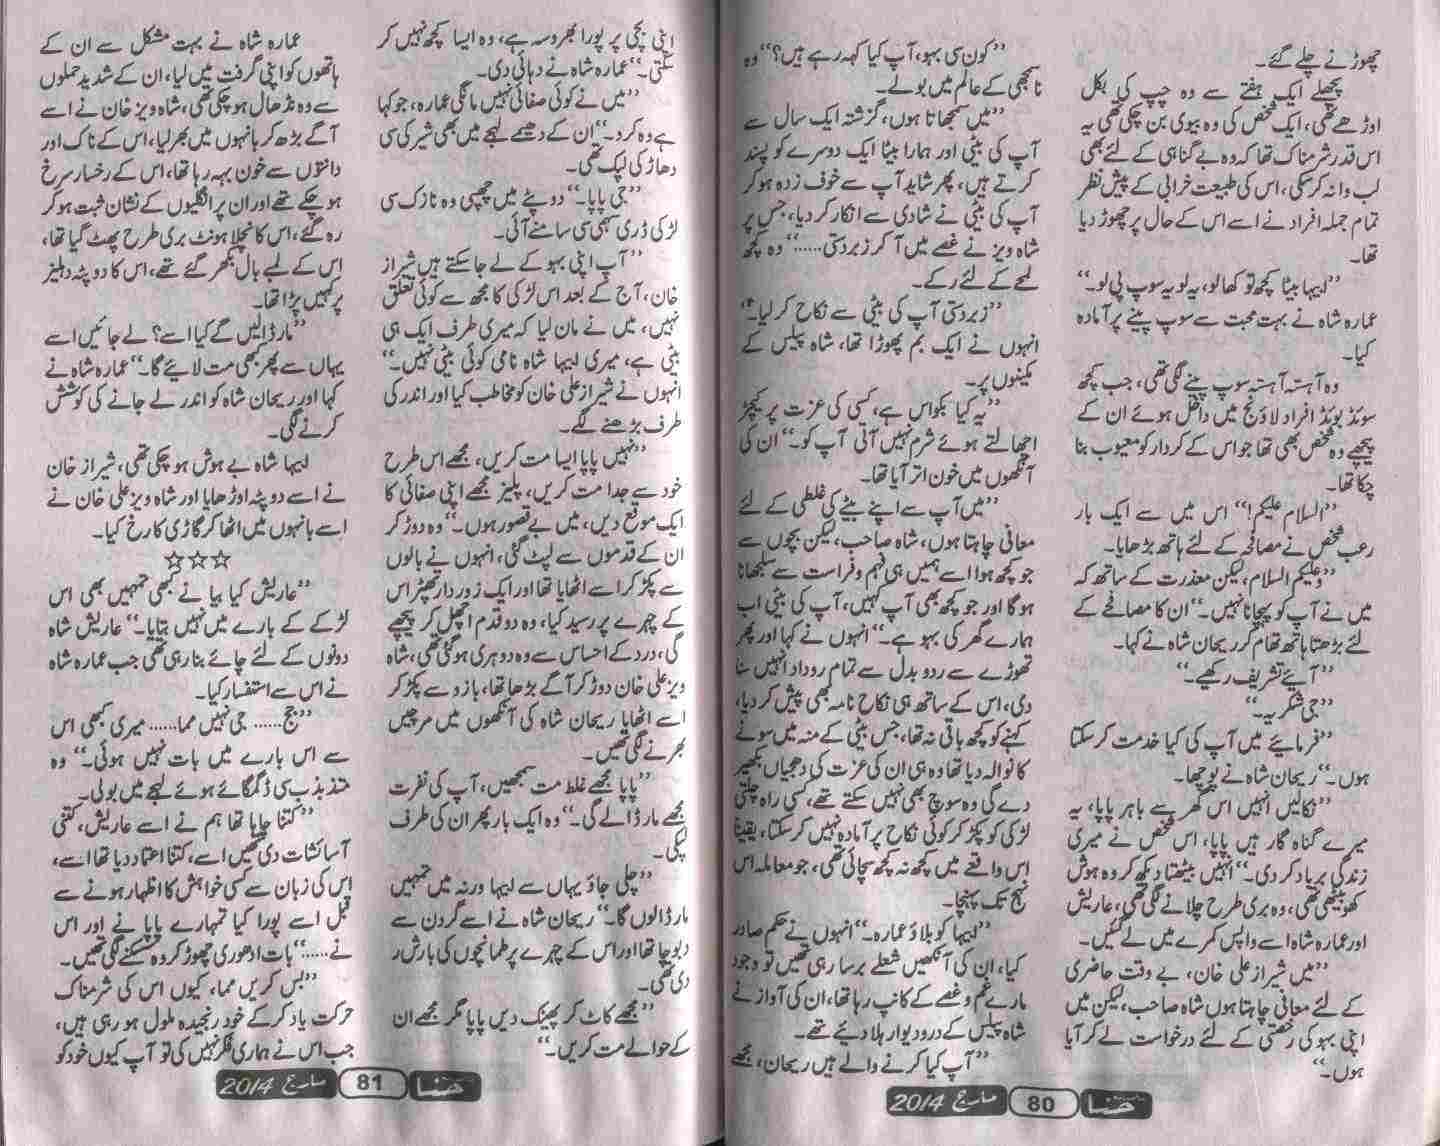 چھوڑنے چلے گئے۔
پچھلے ایک ہفتے سے وہ چپ کی بکل
اوڑھے تھی، ایک شخص کی وہ بیوی بن چکی تھی یہ
اس قدر شرمناک تھا کہ وہ بے گناہی کے لئے بھی
لب وا نہ کر سکی، اس کی طبیعت خرابی کے پیش نظر
تمام جملہ افراد نے اسے اس کے حال پر چھوڑ دیا
تھا۔
”لیہا بیٹا کچھ تو کھا لو، یہ لو یہ سوپ پی لو۔“
عمارہ شاہ نے بہت محبت سے سوپ پینے پر آمادہ
کیا۔
وہ آہستہ آہستہ سوپ پینے لگی تھی، جب کچھ
سوئڈ بوئڈ افراد لاؤنج میں داخل ہوئے ان کے
پیچھے وہ شخص بھی تھا جو اس کے کردار کو معیوب بنا
چکا تھا۔
”السلام علیکم!“ اس میں سے ایک بار
رعب شخص نے مصافحہ کے لئے ہاتھ بڑھایا۔
”وعلیکم السلام، لیکن معذرت کے ساتھ کہ
میں نے آپ کو پہچانا نہیں۔“ ان کا مصافحے کے
لئے بڑھتا ہاتھ تھام کر ریحان شاہ نے کہا۔
”آیئے تشریف رکھیے۔“
”جی شکریہ۔“
”فرمایئے میں آپ کی کیا خدمت کر سکتا
ہوں۔“ ریحان شاہ نے پوچھا۔
”نکالیں انہیں اس گھر سے باہر پاپا، یہ
میرے گناہ گار ہیں پاپا، اس شخص نے میری
زندگی برباد کر دی۔“ انہیں بیٹھتا دیکھ کر وہ ہوش
کھو بیٹھی تھی، وہ بری طرح چلانے لگی تھی، عاریش
اور عمارہ شاہ اسے واپس کمرے میں لے گئیں۔
”میں شیراز علی خان، بے وقت حاضری
کے لئے معافی چاہتا ہوں شاہ صاحب، لیکن میں
اپنی بہو کی رخصتی کے لئے درخواست لے کر آیا
ہوں۔“
”کون سی بہو، آپ کیا کہہ رہے ہیں؟“ وہ
ناسمجھی کے عالم میں بولے۔
”میں سمجھاتا ہوں، گزشتہ ایک سال سے
آپ کی بیٹی اور ہمارا بیٹا ایک دوسرے کو پسند
کرتے ہیں، پھر شاید آپ سے خوف زدہ ہو کر
آپ کی بیٹی نے شادی سے انکار کر دیا، جس پر
شاہ ویز نے غصے میں آ کر زبردستی......“ وہ کچھ
لمحے کے لئے رکے۔
”زبردستی آپ کی بیٹی سے نکاح کر لیا۔“
انہوں نے ایک بم پھوڑا تھا، شاہ پیلس کے
مکینوں پر۔
”یہ کیا بکواس ہے، کسی کی عزت پر کیچڑ
اچھالتے ہوئے شرم نہیں آتی آپ کو۔“ ان کی
آنکھوں میں خون اتر آیا تھا۔
”میں آپ سے اپنے بیٹے کی غلطی کے لئے
معافی چاہتا ہوں، شاہ صاحب، لیکن بچوں سے
جو کچھ ہوا اسے ہمیں ہی فہم و فراست سے سلجھانا
ہو گا اور جو کچھ بھی آپ کہیں، آپ کی بیٹی اب
ہمارے گھر کی بہو ہے۔“ انہوں نے کہا اور پھر
تھوڑے سے ردوبدل سے تمام روداد انہیں سنا
دی، اس کے ساتھ ہی نکاح نامہ بھی پیش کر دیا،
کہنے کو کچھ باقی نہ تھا، جس بیٹی کے منہ میں سونے
کا نوالہ دیا تھا وہ ہی ان کی عزت کی دھجیاں بکھیر
دے گی وہ سوچ بھی نہیں سکتے تھے، کسی راہ چلتی
لڑکی کو پکڑ کر کوئی نکاح پر آمادہ نہیں کر سکتا، یقیناً
اس واقعے میں کچھ نہ کچھ سچائی تھی، جو معاملہ اس
نہج تک پہنچا۔
”لیہا کو بلاؤ عمارہ۔“ انہوں نے حکم صادر
کیا، ان کی آنکھیں شعلے برسا رہی تھیں تو وجود
مارے غم و غصے کے کانپ رہا تھا، ان کی آواز نے
شاہ پیلس کے در و دیوار ہلا دیئے تھے۔
”آپ کیا کرنے والے ہیں ریحان، مجھے
حنا 80 مارچ 2014
اپنی بچی پر پورا بھروسہ ہے، وہ ایسا کچھ نہیں کر
سکتی۔“ عمارہ شاہ نے دہائی دی۔
”میں نے کوئی صفائی نہیں مانگی عمارہ، جو کہا
ہے وہ کرو۔“ ان کے دھیمے لہجے میں بھی شیر کی سی
دھاڑ کی لپک تھی۔
”جی پاپا۔“ دوپٹے میں چھپی وہ نازک سی
لڑکی ڈری سہمی سی سامنے آئی۔
”آپ اپنی بہو کے لے جا سکتے ہیں شیراز
خان، آج کے بعد اس لڑکی کا مجھ سے کوئی تعلق
نہیں، میں نے مان لیا کہ میری طرف ایک ہی
بیٹی ہے، میری لیہا شاہ نامی کوئی بیٹی نہیں۔“
انہوں نے شیراز علی خان کو مخاطب کیا اور اندر کی
طرف بڑھنے لگے۔
”نہیں پاپا ایسا مت کریں، مجھے اس طرح
خود سے جدا مت کریں، پلیز مجھے اپنی صفائی کا
ایک موقع دیں، میں بے قصور ہوں۔“ وہ دوڑ کر
ان کے قدموں سے لپٹ گئی، انہوں نے بالوں
سے پکڑ کر اسے اٹھایا تھا اور ایک زوردار تھپڑ اس
کے چہرے پر رسید کیا، وہ دو قدم اچھل کر پیچھے
گی، درد کے احساس سے وہ دوہری ہو گئی تھی، شاہ
ویز علی خان دوڑ کر آگے بڑھا تھا، بازو سے پکڑ کر
اسے اٹھایا ریحان شاہ کی آنکھوں میں مرچیں
بھرنے لگی تھیں۔
”پاپا مجھے غلط مت سمجھیں، آپ کی نفرت
مجھے مار ڈالے گی۔“ وہ ایک بار پھر ان کی طرف
لپکی۔
”چلی جاؤ یہاں سے لیہا ورنہ میں تمہیں
مار ڈالوں گا۔“ ریحان شاہ نے اسے گردن سے
دبوچا تھا اور اس کے چہرے پر طمانچوں کی بارش
دی تھی۔
”مجھے کاٹ کر پھینک دیں پاپا مگر مجھے ان
کے حوالے مت کریں۔“
عمارہ شاہ نے بہت مشکل سے ان کے
ہاتھوں کو اپنی گرفت میں لیا، ان کے شدید حملوں
سے وہ نڈھال ہو چکی تھی، شاہ ویز خان نے اسے
آگے بڑھ کر بانہوں میں بھر لیا، اس کے ناک اور
دانتوں سے خون بہہ رہا تھا، اس کے رخسار سرخ
ہو چکے تھے اور ان پر انگلیوں کے نشان ثبت ہو کر
رہ گئے، اس کا نچلا ہونٹ بری طرح پھٹ گیا تھا،
اس کے لمبے بال بکھر گئے تھے، اس کا دوپٹہ دہلیز
پر کہیں پڑا تھا۔
”مار ڈالیں گے کیا اسے؟ لے جائیں اسے
یہاں سے پھر کبھی مت لایئے گا۔“ عمارہ شاہ نے
کہا اور ریحان شاہ کو اندر لے جانے کی کوشش
کرنے لگی۔
لیہا شاہ بے ہوش ہو چکی تھی، شیراز خان
نے اسے دوپٹہ اوڑھایا اور شاہ ویز علی خان نے
اسے بانہوں میں اٹھا کر گاڑی کا رخ کیا۔
☆☆☆
”عاریش کیا بیا نے کبھی تمہیں بھی اس
لڑکے کے بارے میں نہیں بتایا۔“ عاریش شاہ
دونوں کے لئے چائے بنا رہی تھی جب عمارہ شاہ
نے اس سے استفسار کیا۔
”جج...... جی نہیں مما...... میری کبھی اس
سے اس بارے میں بات نہیں ہوئی۔“ وہ
متذبذب سی ڈگمگائے ہوئے لہجے میں بولی۔
”کتنا چاہا تھا ہم نے اسے عاریش، کتنی
آسائشات دی تھیں اسے، کتنا اعتماد دیا تھا اسے،
اس کی زبان سے کسی خواہش کا اظہار ہونے سے
قبل اسے پورا کیا تمہارے پاپا نے اور اس
نے......“ بات ادھوری چھوڑ کر وہ سسکنے لگی تھیں۔
”بس کریں مما، کیوں اس کی شرمناک
حرکت یاد کر کے خود رنجیدہ ملول ہو رہی ہیں،
جب اس نے ہماری فکر نہیں کی تو آپ کیوں خود کو
حنا 81 مارچ 2014